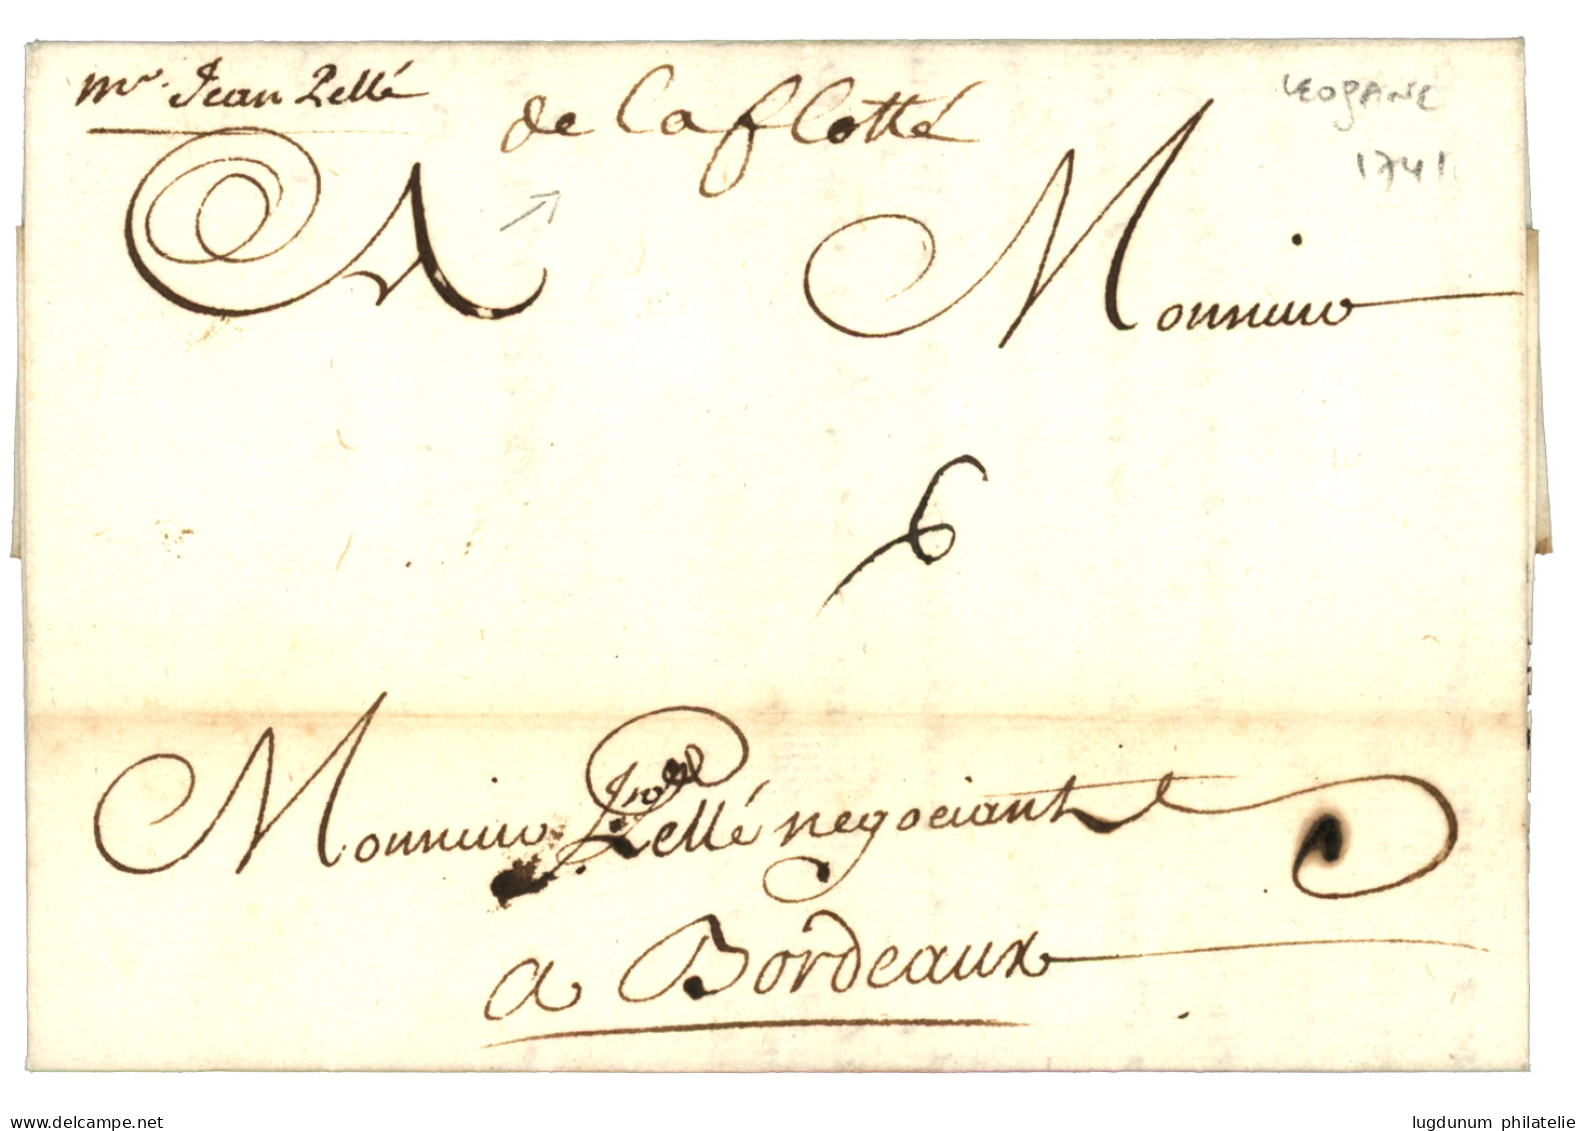 mr. Jean Pellé
de la flotté
LEOGANE
1741
A Monsieur
6
Monsieur Pellé negociant
a Bordeaux
www.delcampe.net
lugdunum philatelie